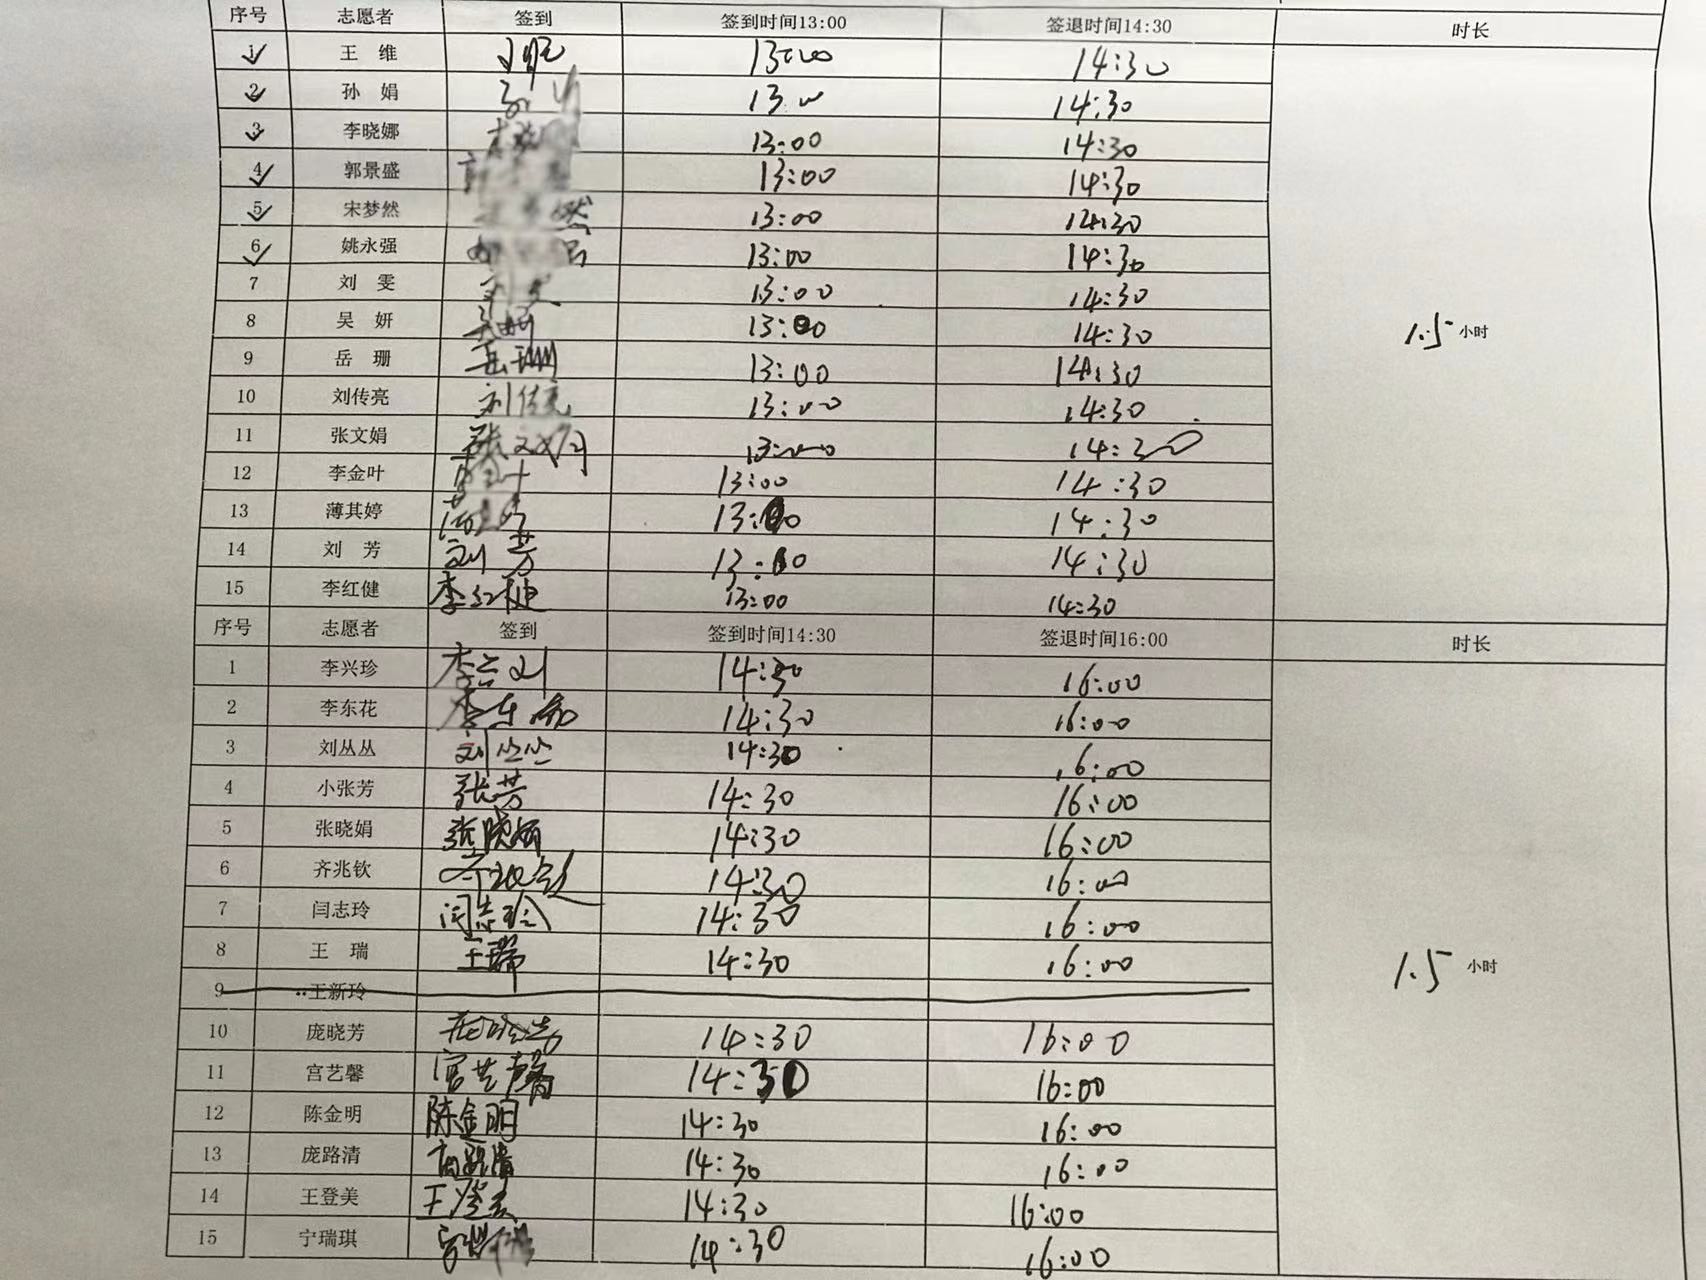 序号 志愿者 签到 签到时间13:00 签退时间14:30 时长
1 王 维 13:00 14:30
2 孙 娟 13:00 14:30
3 李晓娜 13:00 14:30
4 郭景盛 13:00 14:30
5 宋梦然 13:00 14:30
6 姚永强 13:00 14:30
7 刘 雯 13:00 14:30
8 吴 妍 13:00 14:30 1.5 小时
9 岳 珊 岳珊 13:00 14:30
10 刘传亮 刘传亮 13:00 14:30
11 张文娟 张文娟 13:00 14:30
12 李金叶 13:00 14:30
13 薄其婷 13:00 14:30
14 刘 芳 刘芳 13:00 14:30
15 李红健 李红健 13:00 14:30
序号 志愿者 签到 签到时间14:30 签退时间16:00 时长
1 李兴珍 14:30 16:00
2 李东花 李东花 14:30 16:00
3 刘丛丛 刘丛丛 14:30 16:00
4 小张芳 张芳 14:30 16:00
5 张晓娟 张晓娟 14:30 16:00
6 齐兆钦 齐兆钦 14:30 16:00
7 闫志玲 闫志玲 14:30 16:00
8 王 瑞 王瑞 14:30 16:00 1.5 小时
9 王新玲
10 庞晓芳 庞晓芳 14:30 16:00
11 宫艺馨 宫艺馨 14:30 16:00
12 陈金明 陈金明 14:30 16:00
13 庞路清 庞路清 14:30 16:00
14 王登美 王登美 14:30 16:00
15 宁瑞琪 14:30 16:00